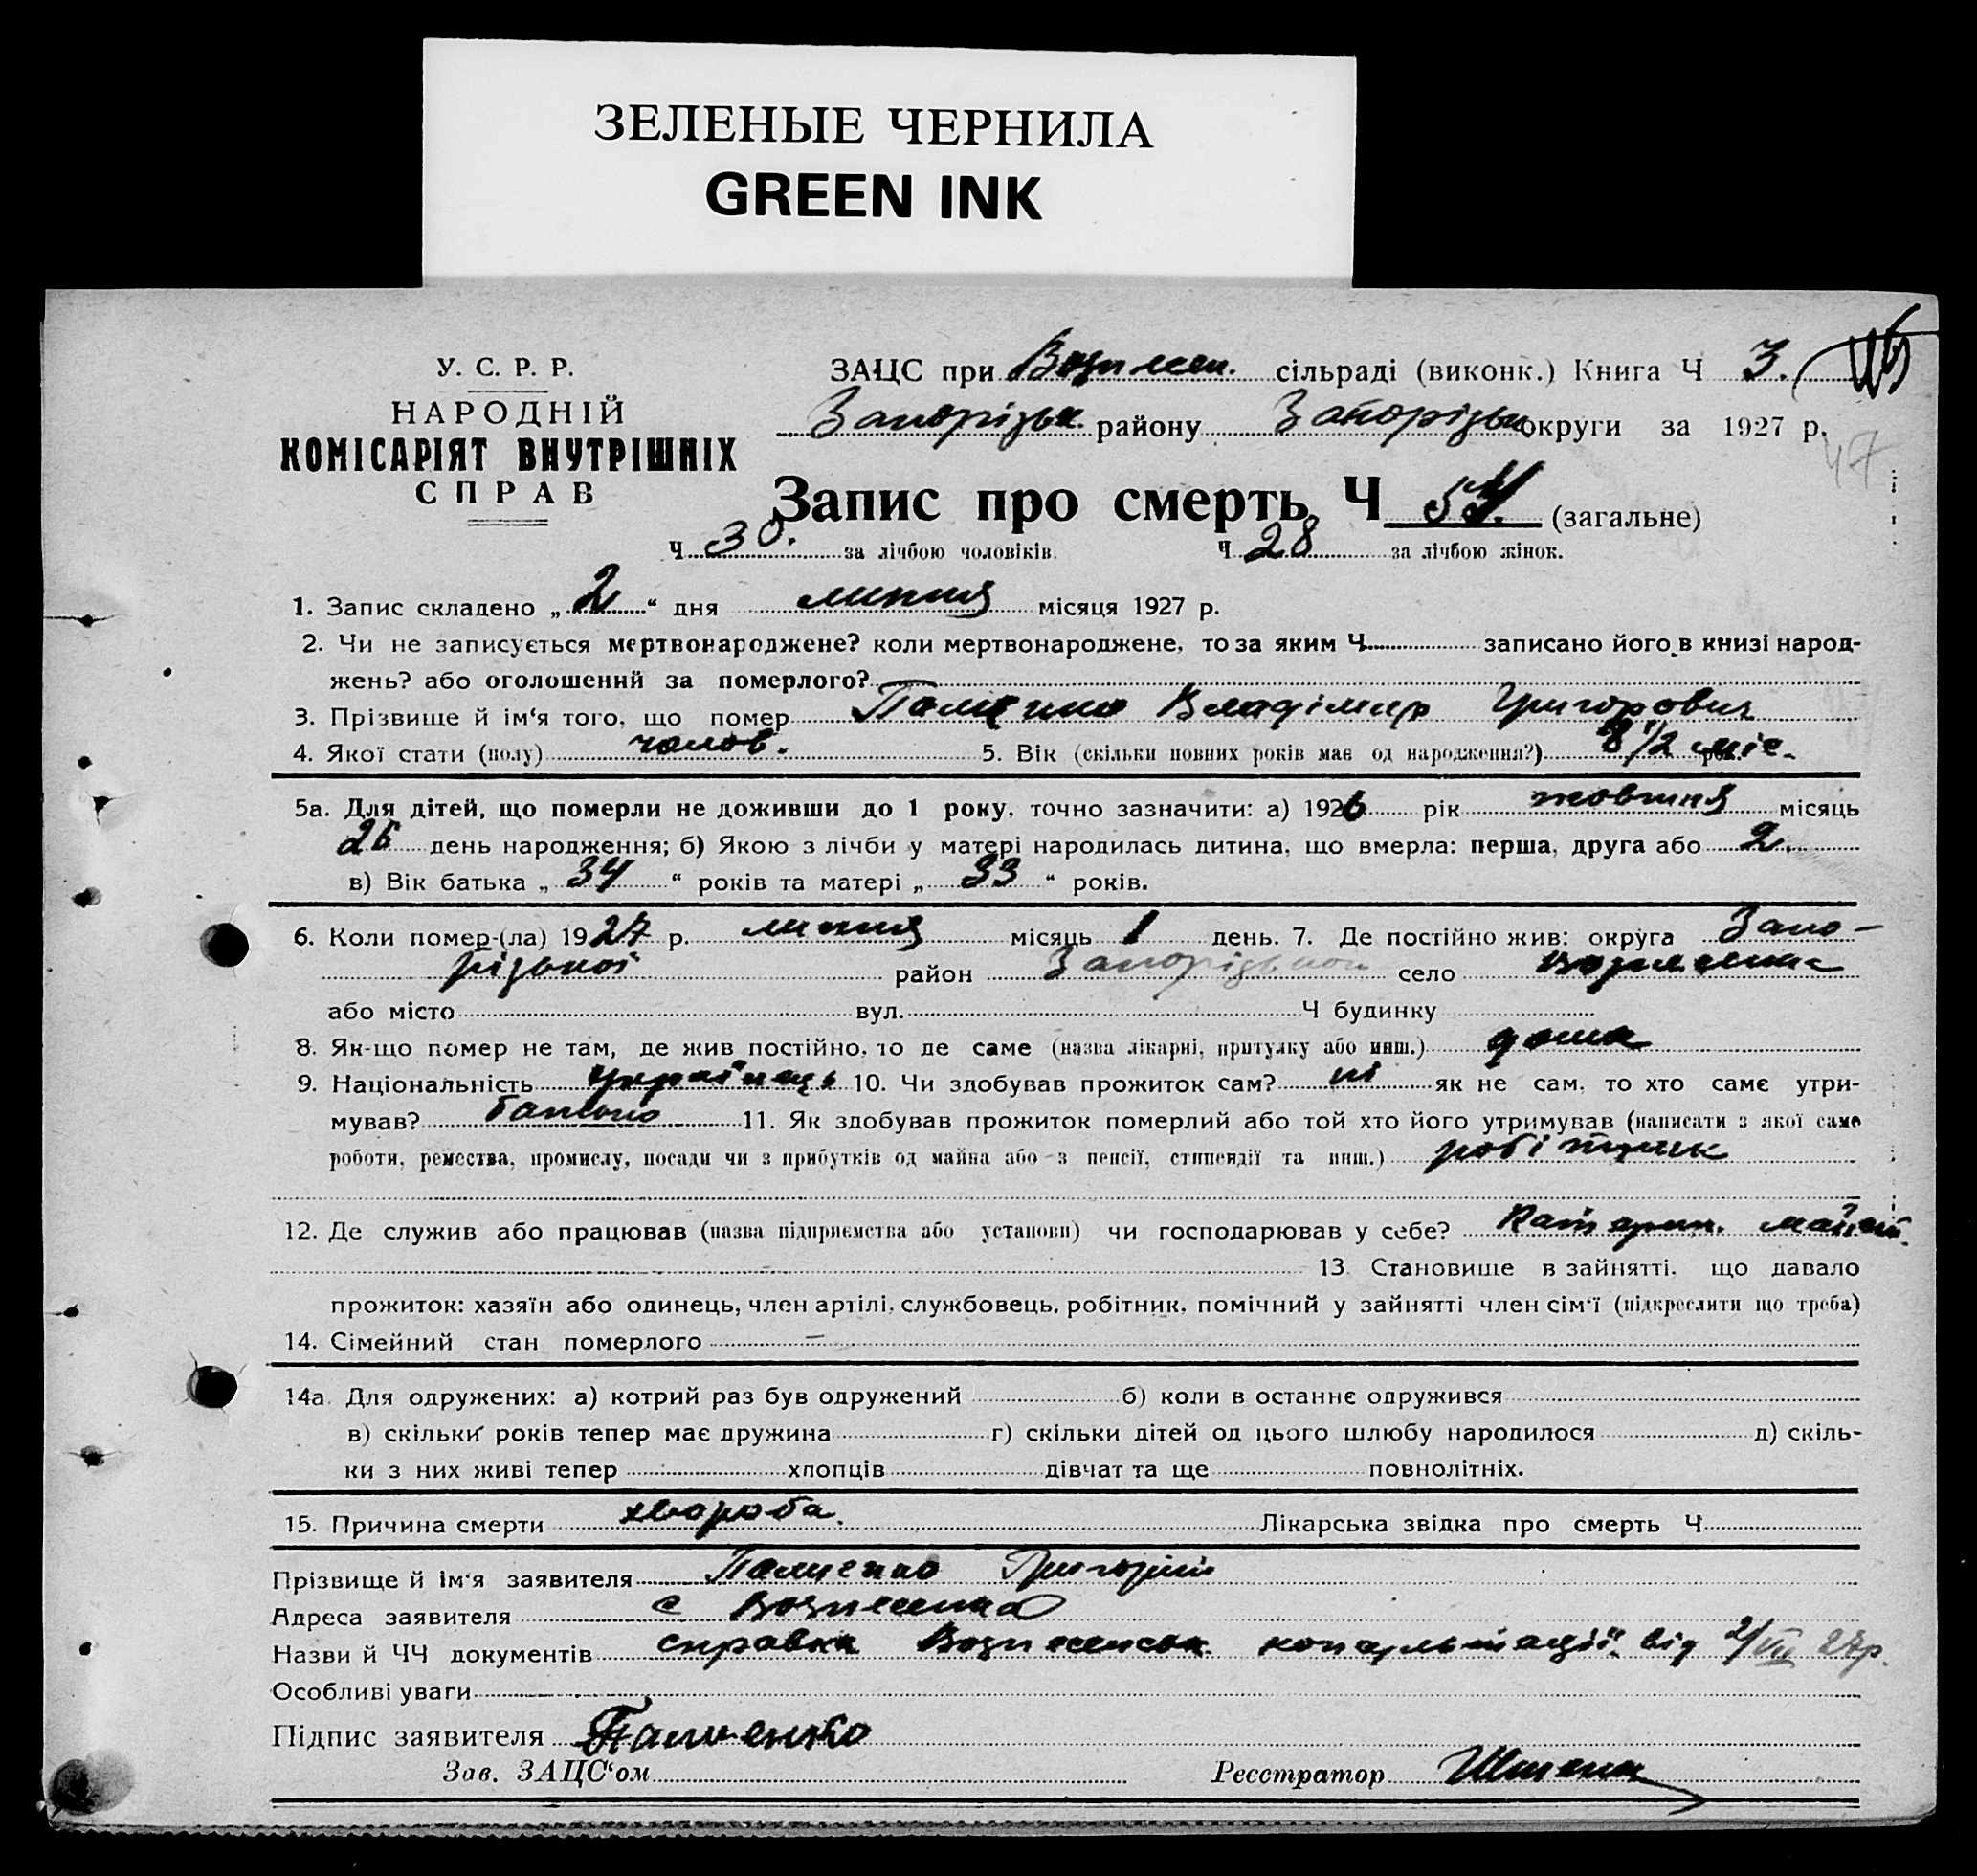 ЗЕЛЕНЫЕ ЧЕРНИЛА
GREEN INK
У. С. Р. Р.
НАРОДНІЙ
КОМІСАРІЯТ ВНУТРІШНІХ
СПРАВ
ЗАЦС при Вознесен. сільраді (виконк.) Книга Ч 3.
Запорізьк. району Запорізьк округи за 1927 р.
47
Запис про смерть Ч (загальне)
Ч 30. за лічбою чоловіків. Ч 28 за лічбою жінок.
1. Запис складено „ 2 “ дня липня місяця 1927 р.
2. Чи не записується мертвонароджене? коли мертвонароджене, то за яким Ч записано його в книзі народ-
жень? або оголошений за померлого?
3. Прізвище й ім‘я того, що помер Владімир Григорович
4. Якої стати (полу) чолов. 5. Вік (скільки повних років має од народження?) 8 1/2 міс.
5а. Для дітей, що померли не доживши до 1 року, точно зазначити: а) 1926 рік жовтня місяць
26 день народження; б) Якою з лічби у матері народилась дитина, що вмерла: перша, друга або 2.
в) Вік батька „ 34 “ років та матері „ 33 “ років.
6. Коли помер-(ла) 1927 р. липня місяць 1 день. 7. Де постійно жив: округа Запо-
різької район Запорізької село Вознесенка
або місто вул. Ч будинку
8. Як-що помер не там, де жив постійно, то де саме (назва лікарні, притулку або инш.) дома
9. Національність українець 10. Чи здобував прожиток сам? ні як не сам, то хто саме утри-
мував? батько 11. Як здобував прожиток померлий або той хто його утримував (написати з якої саме
роботи, ремества, промислу, посади чи з прибутків од майна або з пенсії, стипендії та инш.) робітник
12. Де служив або працював (назва підприємства або установи) чи господарював у себе? Катерин. майст.
13 Становище в зайнятті, що давало
прожиток: хазяїн або одинець, член артілі, службовець, робітник, помічний у зайнятті член сім‘ї (підкреслити що треба)
14. Сімейний стан померлого –
14а. Для одружених: а) котрий раз був одружений б) коли в останнє одружився
в) скільки років тепер має дружина г) скільки дітей од цього шлюбу народилося д) скіль-
ки з них живі тепер хлопців дівчат та ще повнолітніх.
15. Причина смерти хвороба. Лікарська звідка про смерть Ч
Прізвище й ім‘я заявителя Григорій
Адреса заявителя с Вознесенка
Назви й ЧЧ документів справка Вознесенськ. консультації від 2/VII 27р.
Особливі уваги
Підпис заявителя
Зав. ЗАЦС‘ом Реєстратор